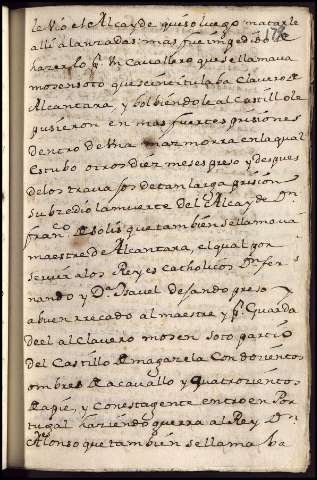 le vio el Alcayde quiso luego matarle
alli a lanzadas: mas fue impedido de
hazerlo pr. Un Cavallero que se llamava
mosen soto que se intitulaba Clavero de
Alcantara, y bolbiendole al Castillo le
pusieron en mas fuertes prisiones
dentro de Una mazmorra en la qual
estubo otros diez meses preso y despues
de los travajos de tan larga prision
subzedio la muerte del Alcayde Dn
franco. de solis que tambien se llamava
maestre de Alcantara, el qual por
servir a los Reyes catholicos Dn fer
nando y Da. Ysavel dejando preso
a buen recado al maestre y pr. Guarda
de el al Clavero mosen soto partio
del Castillo de magazela Con dozientos
ombres de a cavallo y quatrozientos
de a pie, y con esta gente entro en Por
tugal haziendo guerra al Rey Dn
Alonso que tambien se llama ba